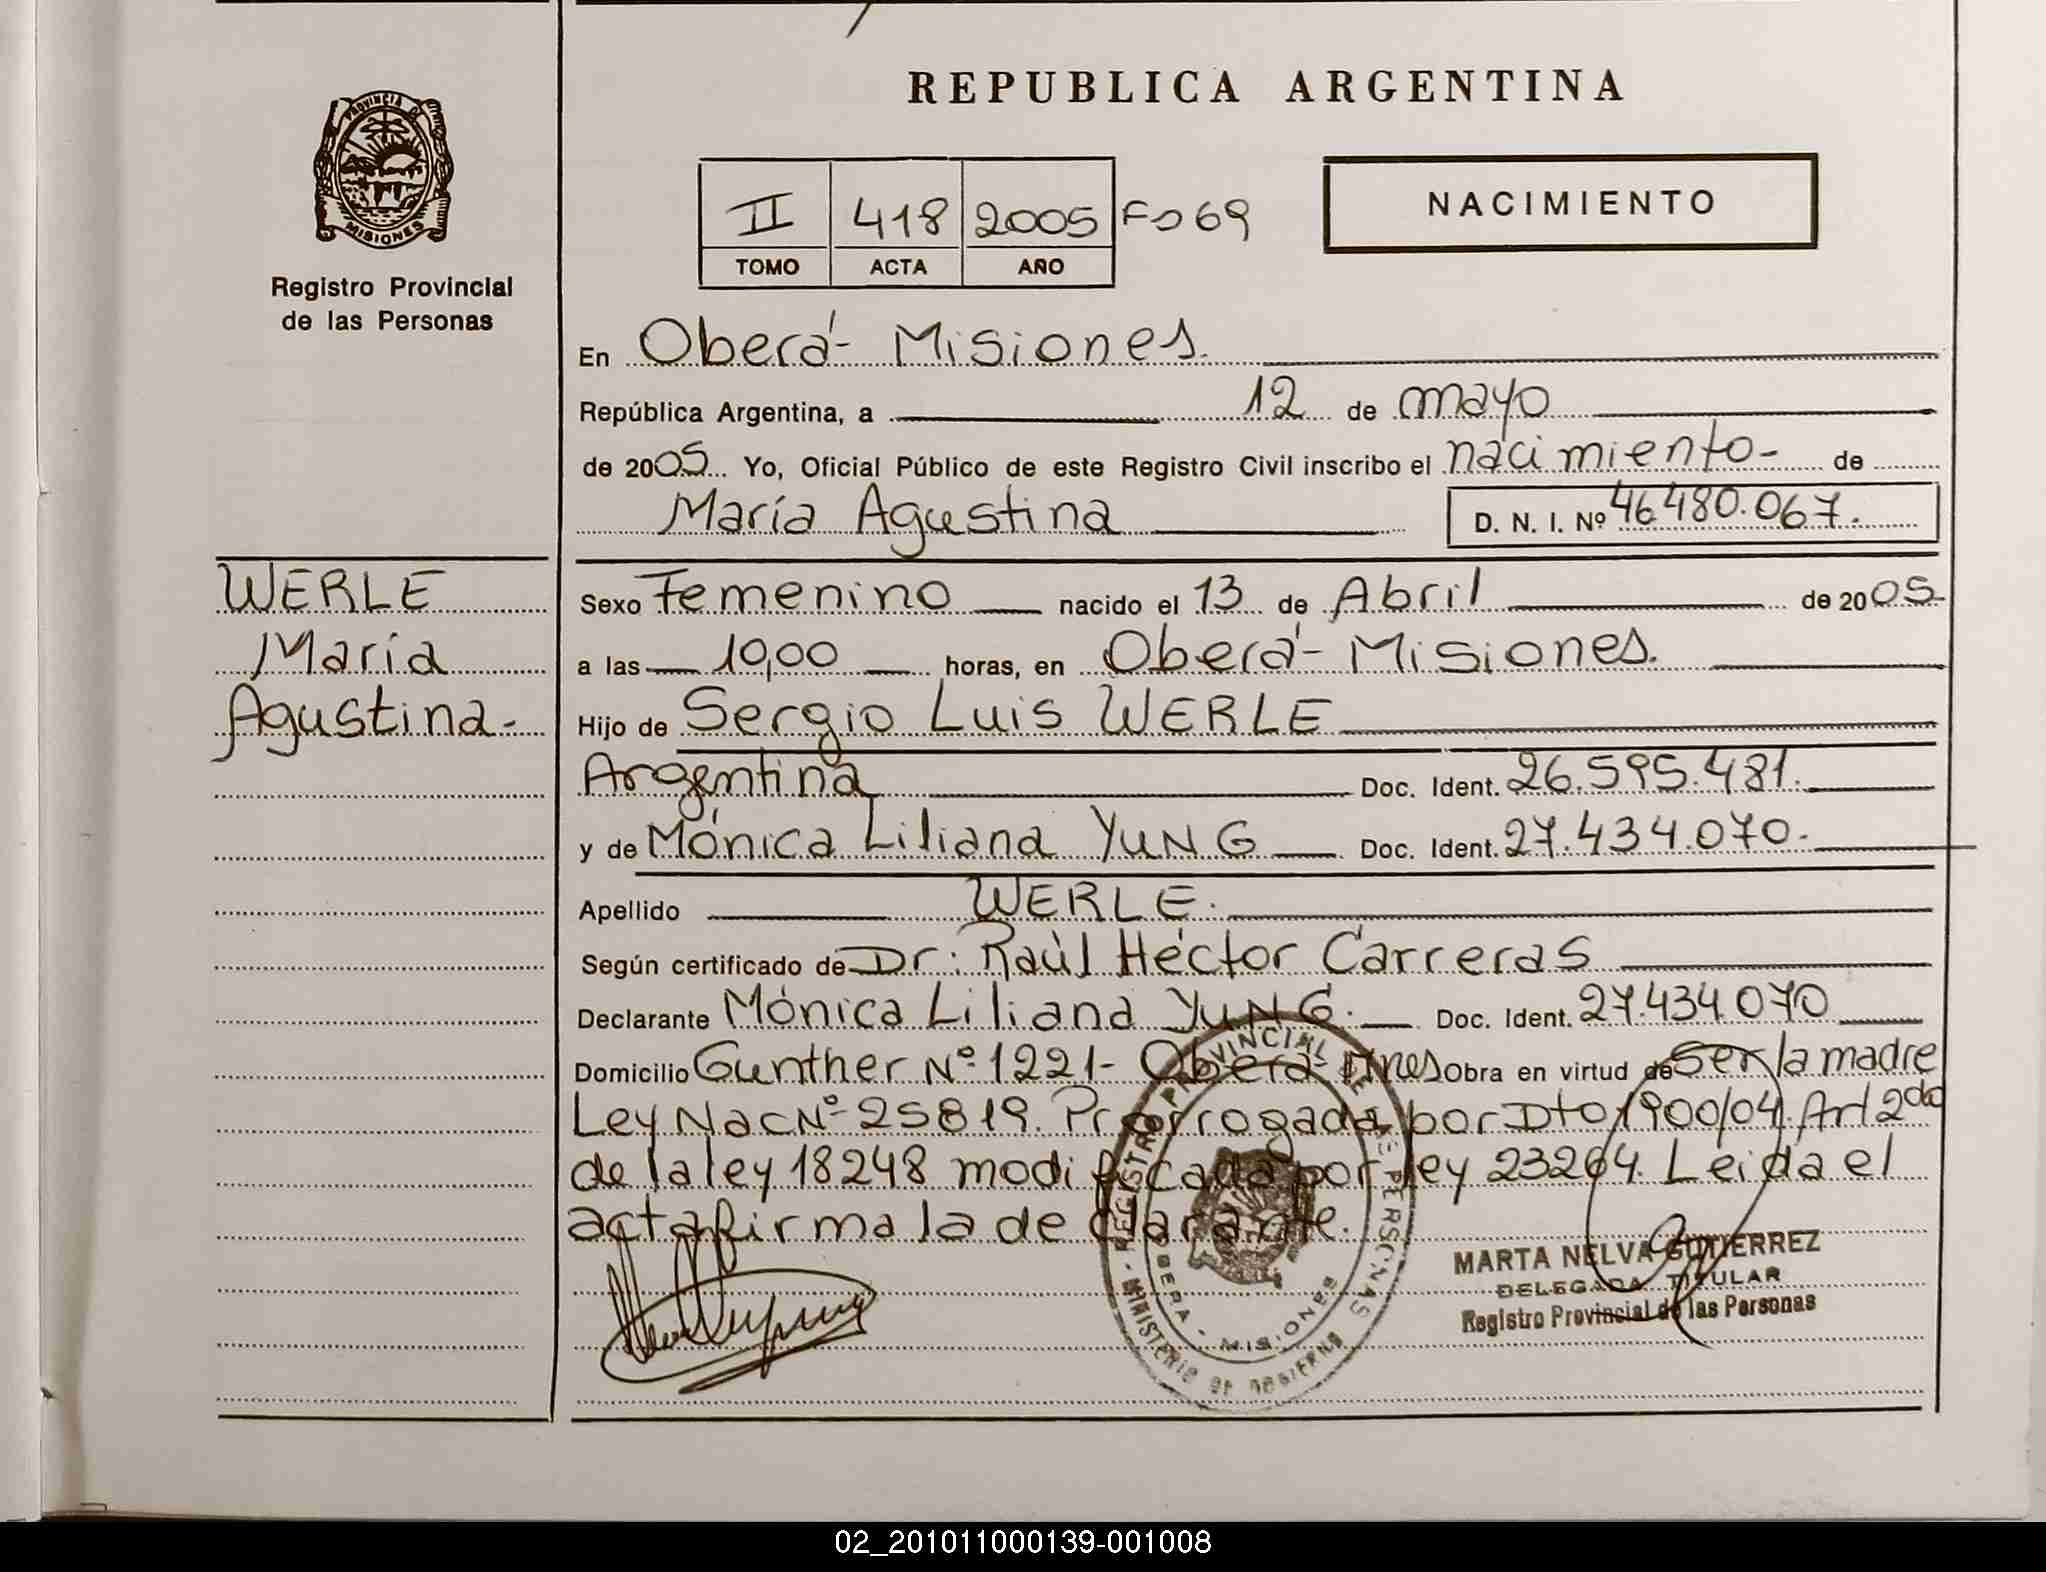 REPUBLICA ARGENTINA
PROVINCIA DE
MISIONES
Registro Provincial
de las Personas
II 418 2005 Fo 69
TOMO ACTA AÑO
NACIMIENTO
En Oberá- Misiones.
República Argentina, a 12 de mayo
de 2005 Yo, Oficial Público de este Registro Civil inscribo el nacimiento- de
María Agustina D. N. I. Nº 46.480.067.
WERLE
María
Agustina-
Sexo Femenino nacido el 13 de Abril de 2005-
a las 10,00 horas, en Oberá- Misiones.
Hijo de Sergio Luis WERLE
Argentina Doc. Ident. 26.595.481.
y de Mónica Liliana YUNG Doc. Ident. 27.434.070-
Apellido WERLE.
Según certificado de Dr: Raúl Héctor Carreras
Declarante Mónica Liliana YUNG. Doc. Ident. 27.434.070
Domicilio Gunther Nº 1221- Oberá- Mnes Obra en virtud de Ser la madre
Ley Nac Nº 25819. Prorrogada por Dto 1900/04. Art 2do
de la ley 18248 modificada por ley 23264. Leida el
acta firma la declarante.
REGISTRO PROVINCIAL DE PERSONAS
OBERA - MISIONES
MINISTERIO DE GOBIERNO
MARTA NELVA GUTIERREZ
DELEGADA TITULAR
Registro Provincial de las Personas
02_201011000139-001008